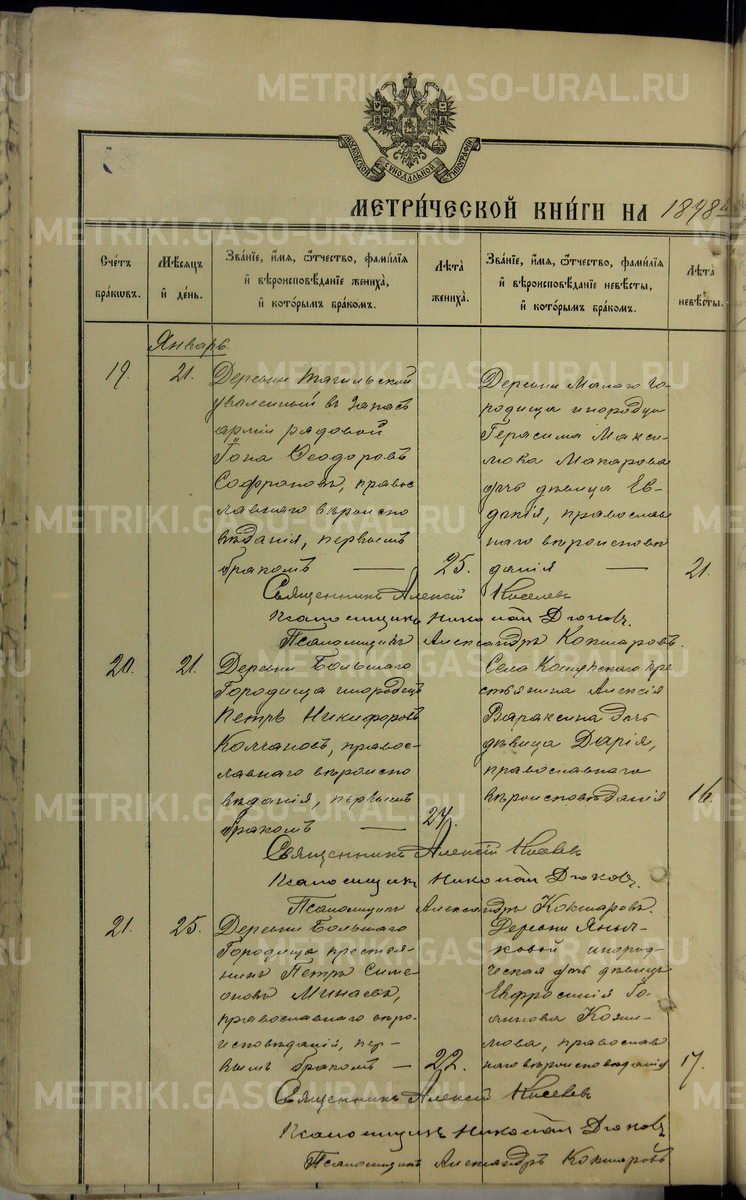 METRIKI.GASO-URAL.RU
МОСКОВСКОЙ СѴНОДАЛЬНОЙ ТИПОГРАФІИ
МЕТРИ́ЧЕСКОЙ КНИ́ГИ НА 1898
Сче́тъ бра́кѡвъ.
Мѣ́сяцъ и҆ де́нь.
Зва́нїе, и҆́мя, ѻ҆́тчество, фами́лїя и҆ вѣроисповѣ́данїе жениха̀, и҆ кото́рымъ бра́комъ.
Лѣ́та жениха̀.
Зва́нїе, и҆́мя, ѻ҆́тчество, фами́лїя и҆ вѣроисповѣ́данїе невѣ́сты, и҆ кото́рымъ бра́комъ.
Лѣ́та невѣ́сты.
Январь.
19. 21.
Деревни Тагильской
уволенный въ запасъ
арміи рядовой
Іона Ѳеодоровъ
Софроновъ, правос
лавнаго вѣроиспо
вѣданія, первымъ
бракомъ — 25.
Деревни Малаго Го-
родища инородца
Герасима Макси-
мова Макарова
дчь дѣвица Ев-
докія, православ
наго вѣроисповѣ
данія — 21.
Священникъ Алексій Киселевъ
Псаломщикъ Николай Дюковъ.
Псаломщикъ Александръ Кокшаровъ.
20. 21.
Деревни Большаго
Городища инородецъ
Петръ Никифоровъ
Колчановъ, правос-
лавнаго вѣроиспо
вѣданія, первымъ
бракомъ — 24.
Села Кошукскаго кре
стьянина Алексія
Вараксина дчь
дѣвица Дарія,
православнаго
вѣроисповѣданія 16.
Священникъ Алексій Киселевъ
Псаломщикъ Николай Дюковъ.
Псаломщикъ Александръ Кокшаровъ.
21. 25.
Деревни Большаго
Городища крестья-
нинъ Петръ Симе-
оновъ Минаевъ,
православнаго вѣро-
исповѣданія, пер-
вымъ бракомъ — 22.
Деревни Яныч-
ковой инород-
ческая дчь дѣвица
Евфросинія Іо-
аннова Козы-
мова, православ
наго вѣроисповѣданія 17.
Священникъ Алексій Киселевъ
Псаломщикъ Николай Дюковъ
Псаломщикъ Александръ Кокшаровъ